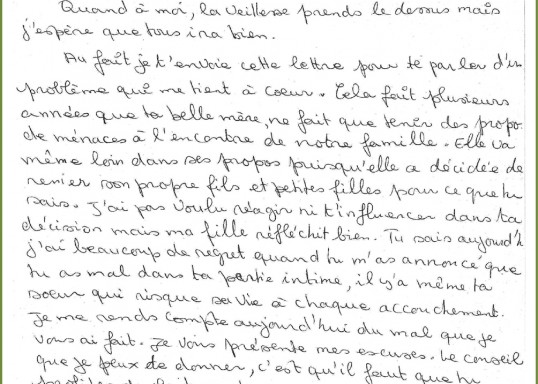 Quand à moi, la veillesse prends le dessus mais
j'espère que tous ira bien.
Au faît je t'envoie cette lettre pour te parler d'un
problème qui me tient à coeur. Cela faît plusieurs
années que ta belle mère, ne fait que tenir des propo
de ménaces à l'encontre de notre famille. Elle va
même loin dans ses propos puisqu'elle a décidée de
renier son propre fils et petites filles pour ce que tu
sais. J'ai pas voulu réagir ni t'influencer dans ta
décision mais ma fille réfléchit bien. Tu sais aujourd'h
j'ai beaucoup de regret quand tu m'as annoncé que
tu as mal dans ta partie intime, il y'a même ta
soeur qui risque sa vie à chaque accouchement.
Je me rends compte aujourd'hui du mal que je
vous ai fait. Je vous présente mes escuses. Le conseil
que je peux te donner, c'est qu'il faut que tu